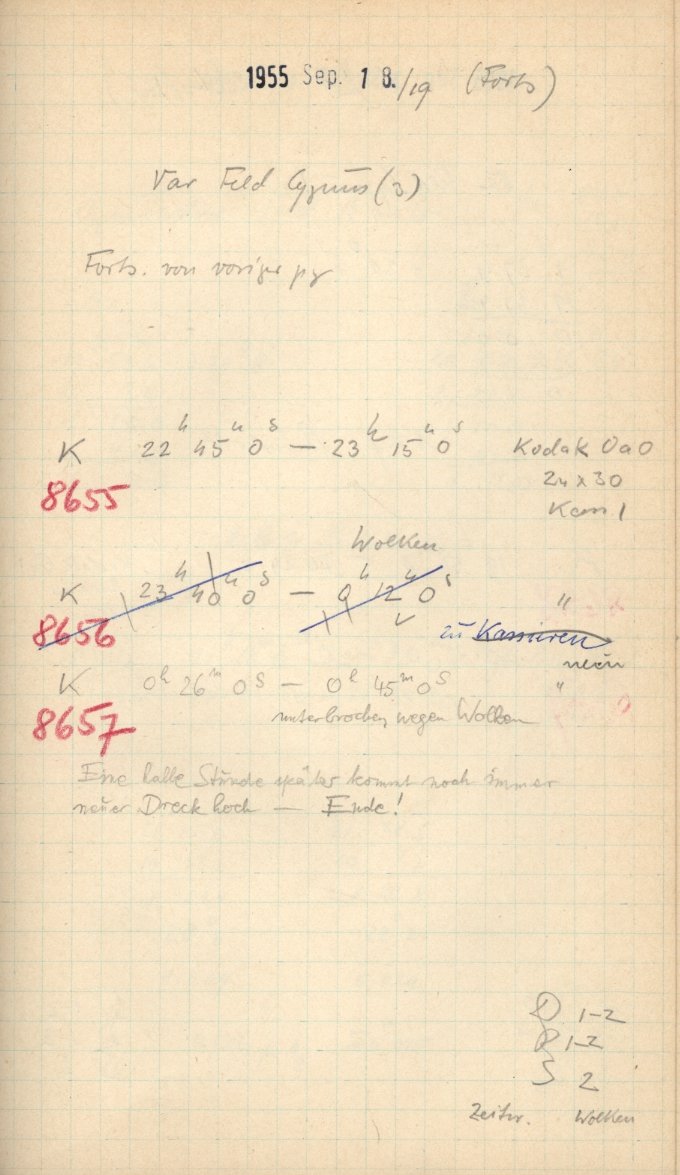 1955 Sep. 18./19 (Forts)
Var Feld Cygnus (3)
Forts. von voriger pg
K 22h 45m 0s — 23h 15m 0s Kodak OaO
8655 24 x 30
Kass 1
Wolken
K 23h 40m 0s — 0h 12m 0s "
8656 zu Kassieren
nein
K 0h 26m 0s — 0h 45m 0s "
8657 unterbrochen wegen Wolken
Eine halbe Stunde später kommt noch immer
neuer Dreck hoch — Ende!
D 1-2
R 1-2
S 2
Zeitw. Wolken